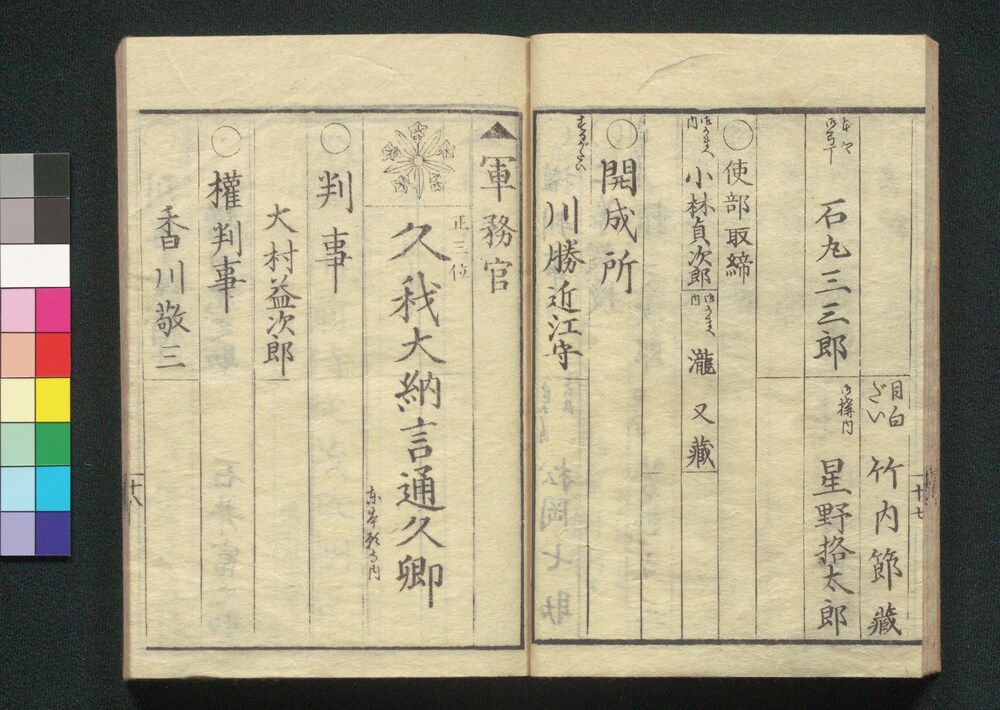 十七
目白
ざい
竹内節藏
石丸三三郎
御構内
星野挌太郎
○使部取締
内
小林貞次郎
内
瀧又藏
○開成所
川勝近江守
▲軍務官
正三位
久我大納言通久卿
東本願寺内
○判事
大村益次郎
○權判事
香川敬三
十八